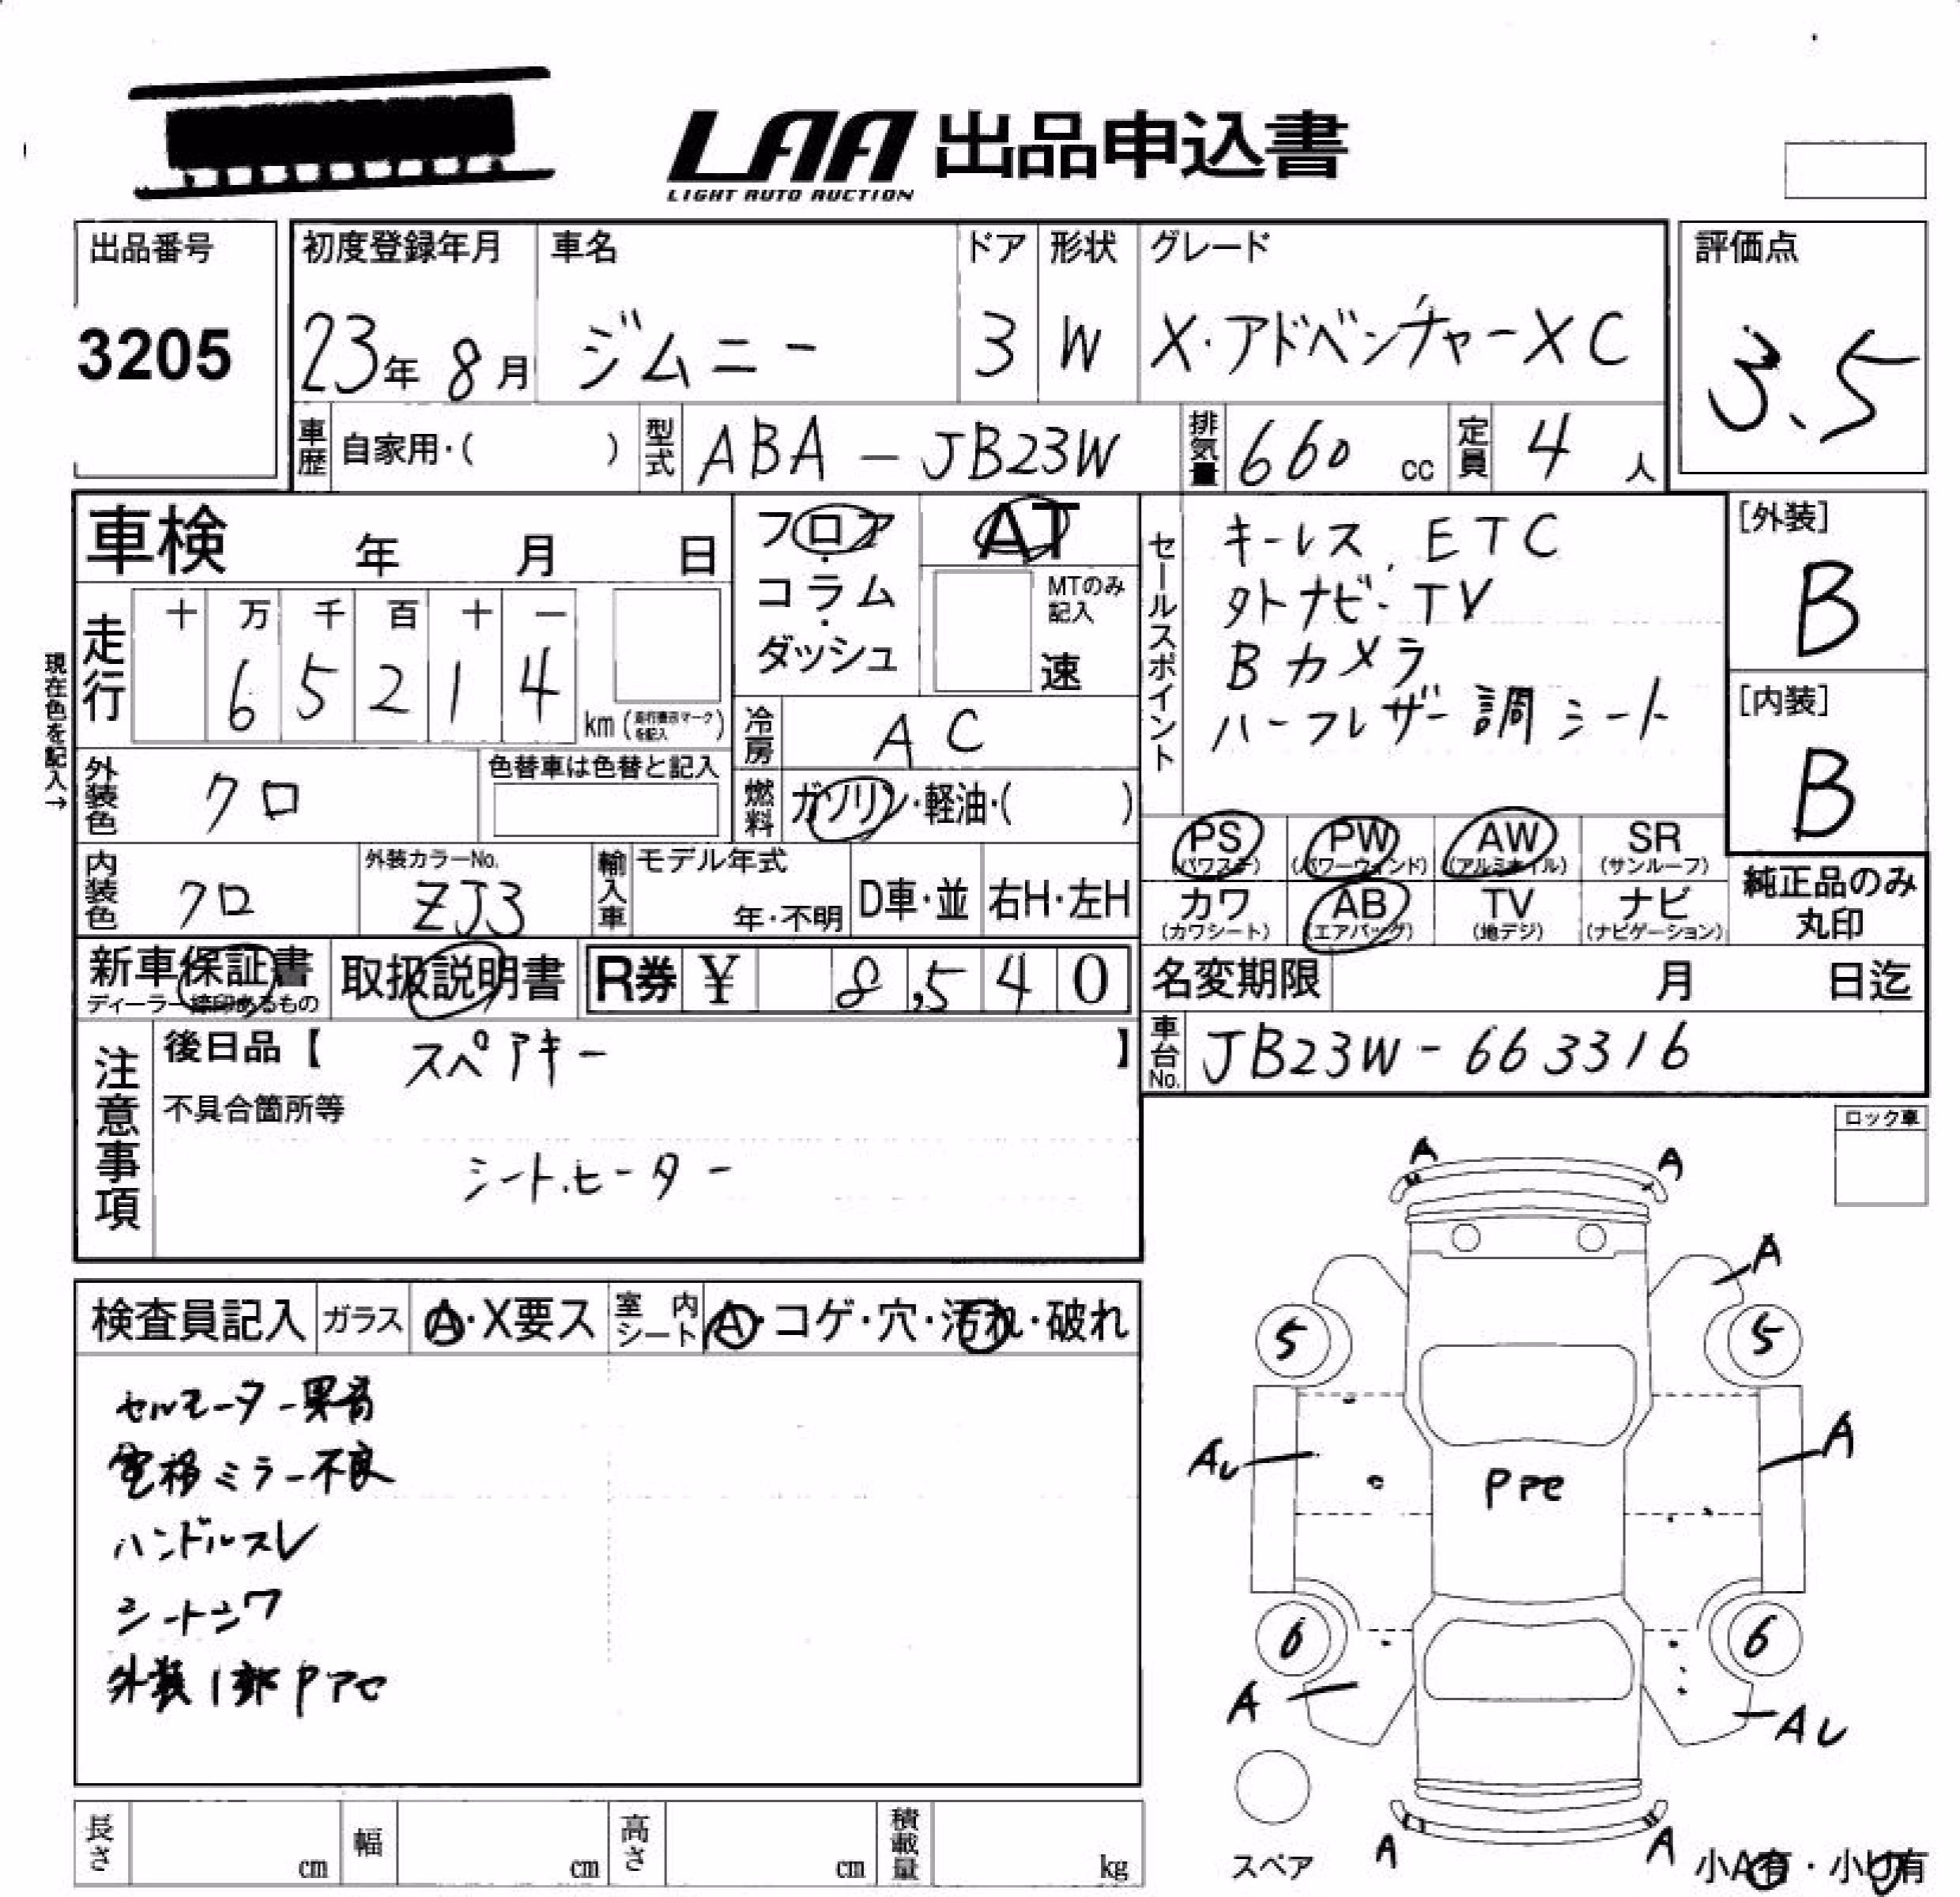 LAA 出品申込書
LIGHT AUTO AUCTION
出品番号
3205
初度登録年月 車名 ドア 形状 グレード
23年 8月 ジムニー 3 W X・アドベンチャーXC
評価点
3.5
車歴 自家用・( ) 型式 ABA-JB23W 排気量 660 cc 定員 4 人
車検 年 月 日
フロア・コラム・ダッシュ
AT
MTのみ記入
速
セールスポイント
キーレス、ETC
外ナビ・TV
Bカメラ
ハーフレザー調シート
[外装]
B
[内装]
B
現在色を記入→
走行 十 万 千 百 十 一
6 5 2 1 4 km (走行表示マークを記入)
冷房 AC
外装色 クロ
色替車は色替と記入
燃料 ガソリン・軽油・( )
PS (パワステ) PW (パワーウィンド) AW (アルミホイル) SR (サンルーフ)
カワ (カワシート) AB (エアバッグ) TV (地デジ) ナビ (ナビゲーション)
純正品のみ丸印
内装色 クロ
外装カラーNo.
ZJ3
輸入車 モデル年式 年・不明 D車・並 右H・左H
新車保証書
ディーラー捺印あるもの
取扱説明書
R券 ¥ 8,540
名変期限 月 日迄
車台No. JB23W-663316
注意事項
後日品【 スペアキー 】
不具合箇所等
シートヒーター
ロック車
検査員記入 ガラス A・X要ス 室内シート A・コゲ・穴・汚れ・破れ
セルモーター異音
電格ミラー不良
ハンドルスレ
シートシワ
外装1部Pアセ
A A
A
5 5
AU A
Pアセ
6 6
A AU
A A
スペア
小A有・小U有
長さ cm 幅 cm 高さ cm 積載量 kg